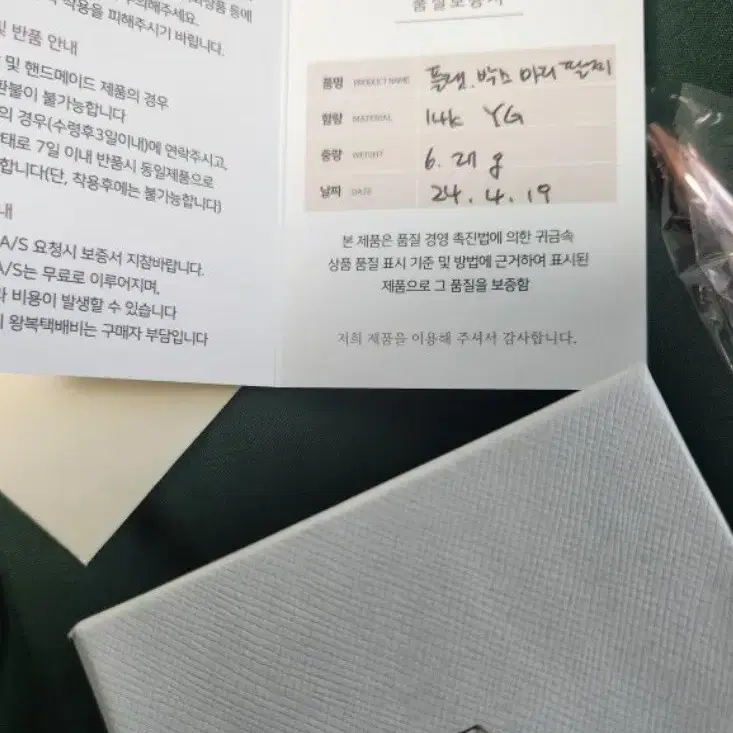 착용을 피해주시기 바랍니다.
및 반품 안내
및 핸드메이드 제품의 경우
환불이 불가능합니다
의 경우(수령후3일이내)에 연락주시고,
상태로 7일 이내 반품시 동일제품으로
합니다(단, 착용후에는 불가능합니다)
A/S 요청시 보증서 지참바랍니다.
A/S는 무료로 이루어지며,
비용이 발생할 수 있습니다
왕복택배비는 구매자 부담입니다
품질보증서
품명 PRODUCT NAME 플랫.박스 마리 팔찌
함량 MATERIAL 14k YG
중량 WEIGHT
날짜 DATE 24.4.19
본 제품은 품질 경영 촉진법에 의한 귀금속
상품 품질 표시 기준 및 방법에 근거하여 표시된
제품으로 그 품질을 보증함
저희 제품을 이용해 주셔서 감사합니다.